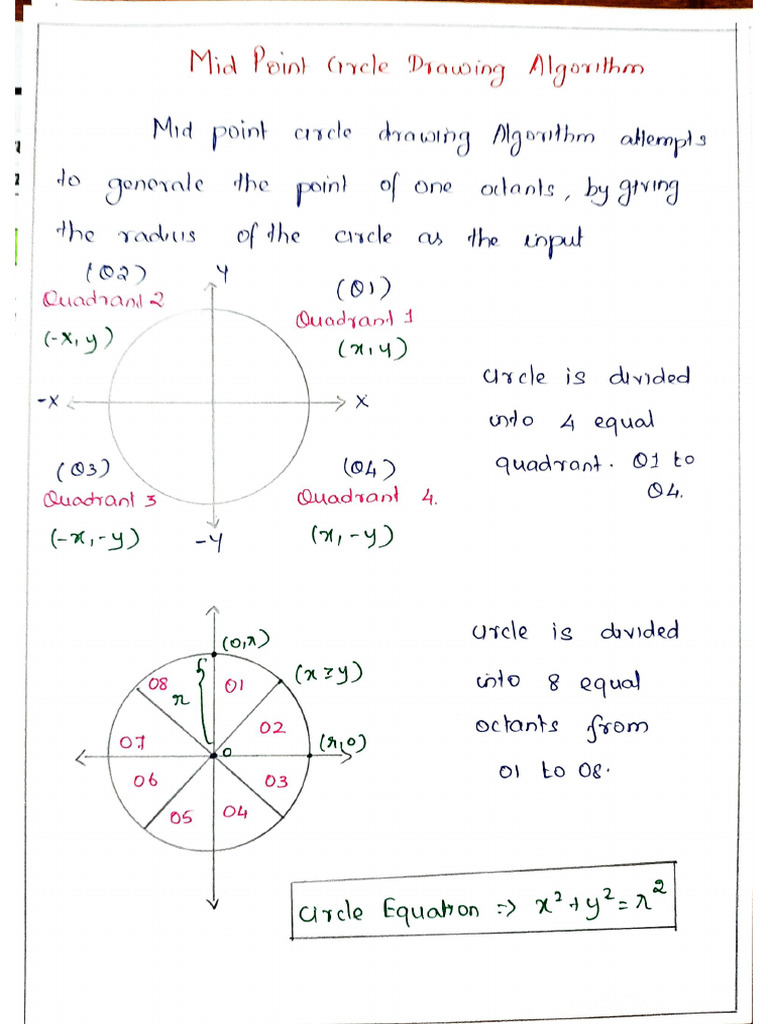 Mid Point Circle Drawing Algorithm
Mid point circle drawing Algorithm attempts
to generate the point of one octants, by giving
the radius of the circle as the input
(Q2)
Y
(Q1)
Quadrant 2
Quadrant 1
(-x, y)
(x, y)
-X
X
circle is divided
into 4 equal
quadrant. Q1 to
Q4.
(Q3)
(Q4)
Quadrant 3
Quadrant 4.
(-x, -y)
-Y
(x, -y)
(0, r)
(x ≥ y)
08
01
r
02
07
0
(r, 0)
06
03
05
04
circle is divided
into 8 equal
octants from
01 to 08.
Circle Equation => x² + y² = r²